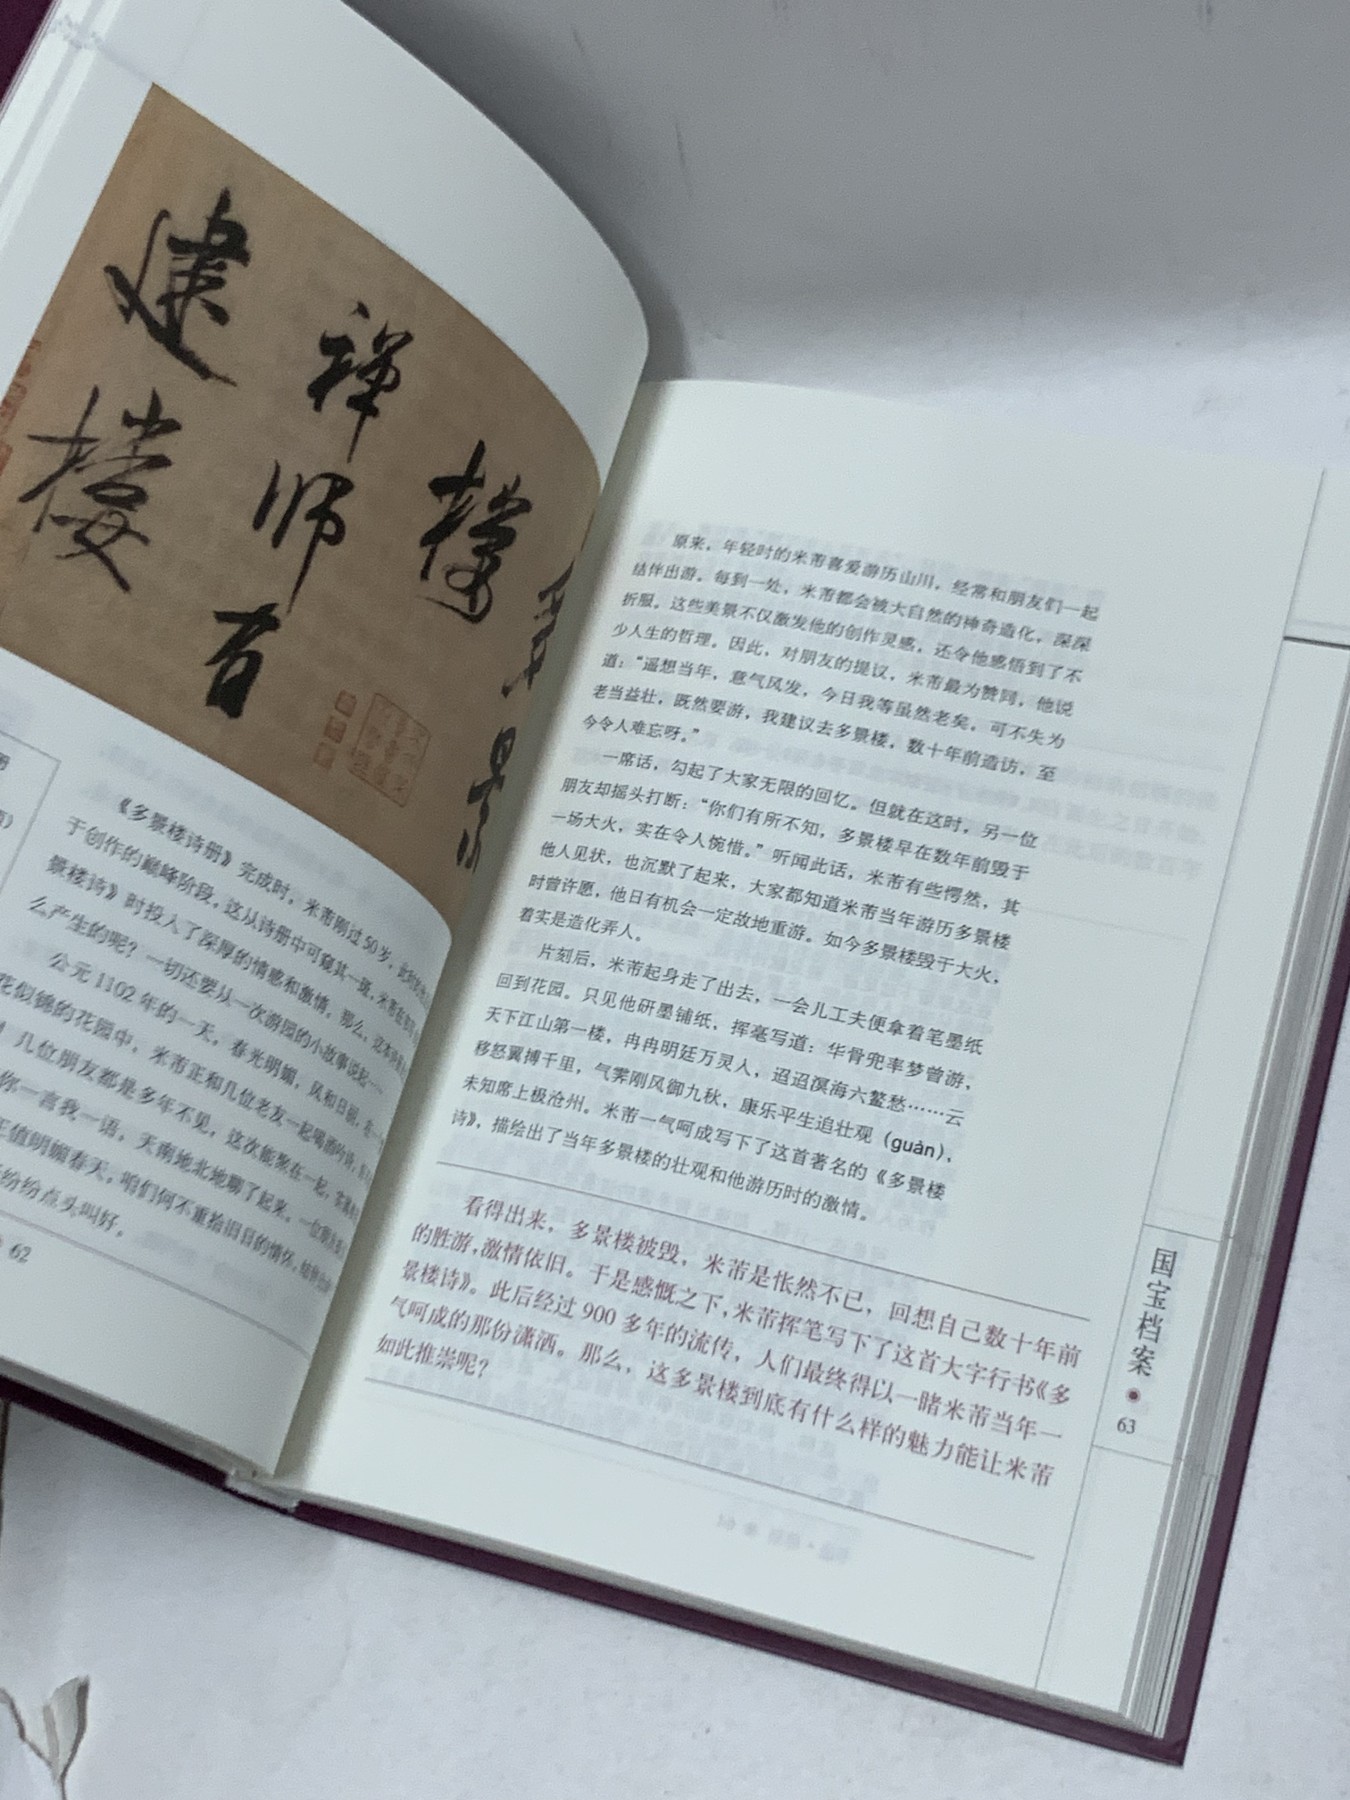 建
楼
禅
师
有
楼
《多景楼诗册》完成时，米芾刚过50岁，
于创作的巅峰阶段，这从诗册中可窥其一斑，米芾在
景楼诗》时投入了深厚的情感和激情。那么，这本
么产生的呢？一切还要从一次游园的小故事说起……
公元1102年的一天，春光明媚，风和日丽，在一
花似锦的花园中，米芾正和几位老友一起喝酒
几位朋友都是多年不见，这次能聚在一起，
你一言我一语，天南地北地聊了起来。一位
正值明媚春天，咱们何不重拾旧日的情怀，
纷纷点头叫好。
62
原来，年轻时的米芾喜爱游历山川，经常和朋友们一起
结伴出游。每到一处，米芾都会被大自然的神奇造化，深深
折服。这些美景不仅激发他的创作灵感，还令他感悟到了不
少人生的哲理。因此，对朋友的提议，米芾最为赞同，他说
道：“遥想当年，意气风发，今日我等虽然老矣，可不失为
老当益壮，既然要游，我建议去多景楼，数十年前造访，至
今令人难忘呀。”
一席话，勾起了大家无限的回忆。但就在这时，另一位
朋友却摇头打断：“你们有所不知，多景楼早在数年前毁于
一场大火，实在令人惋惜。”听闻此话，米芾有些愕然，其
他人见状，也沉默了起来，大家都知道米芾当年游历多景楼
时曾许愿，他日有机会一定故地重游。如今多景楼毁于大火，
着实是造化弄人。
片刻后，米芾起身走了出去，一会儿工夫便拿着笔墨纸
回到花园。只见他研墨铺纸，挥毫写道：华骨兜率梦曾游，
天下江山第一楼，冉冉明廷万灵人，迢迢溟海六鳌愁……云
移怒翼搏千里，气霁刚风御九秋，康乐平生追壮观（guàn），
未知席上极沧州。米芾一气呵成写下了这首著名的《多景楼
诗》，描绘出了当年多景楼的壮观和他游历时的激情。
看得出来，多景楼被毁，米芾是怅然不已，回想自己数十年前
的胜游，激情依旧。于是感慨之下，米芾挥笔写下了这首大字行书《多
景楼诗》。此后经过900多年的流传，人们最终得以一睹米芾当年一
气呵成的那份潇洒。那么，这多景楼到底有什么样的魅力能让米芾
如此推崇呢？
国宝档案
63